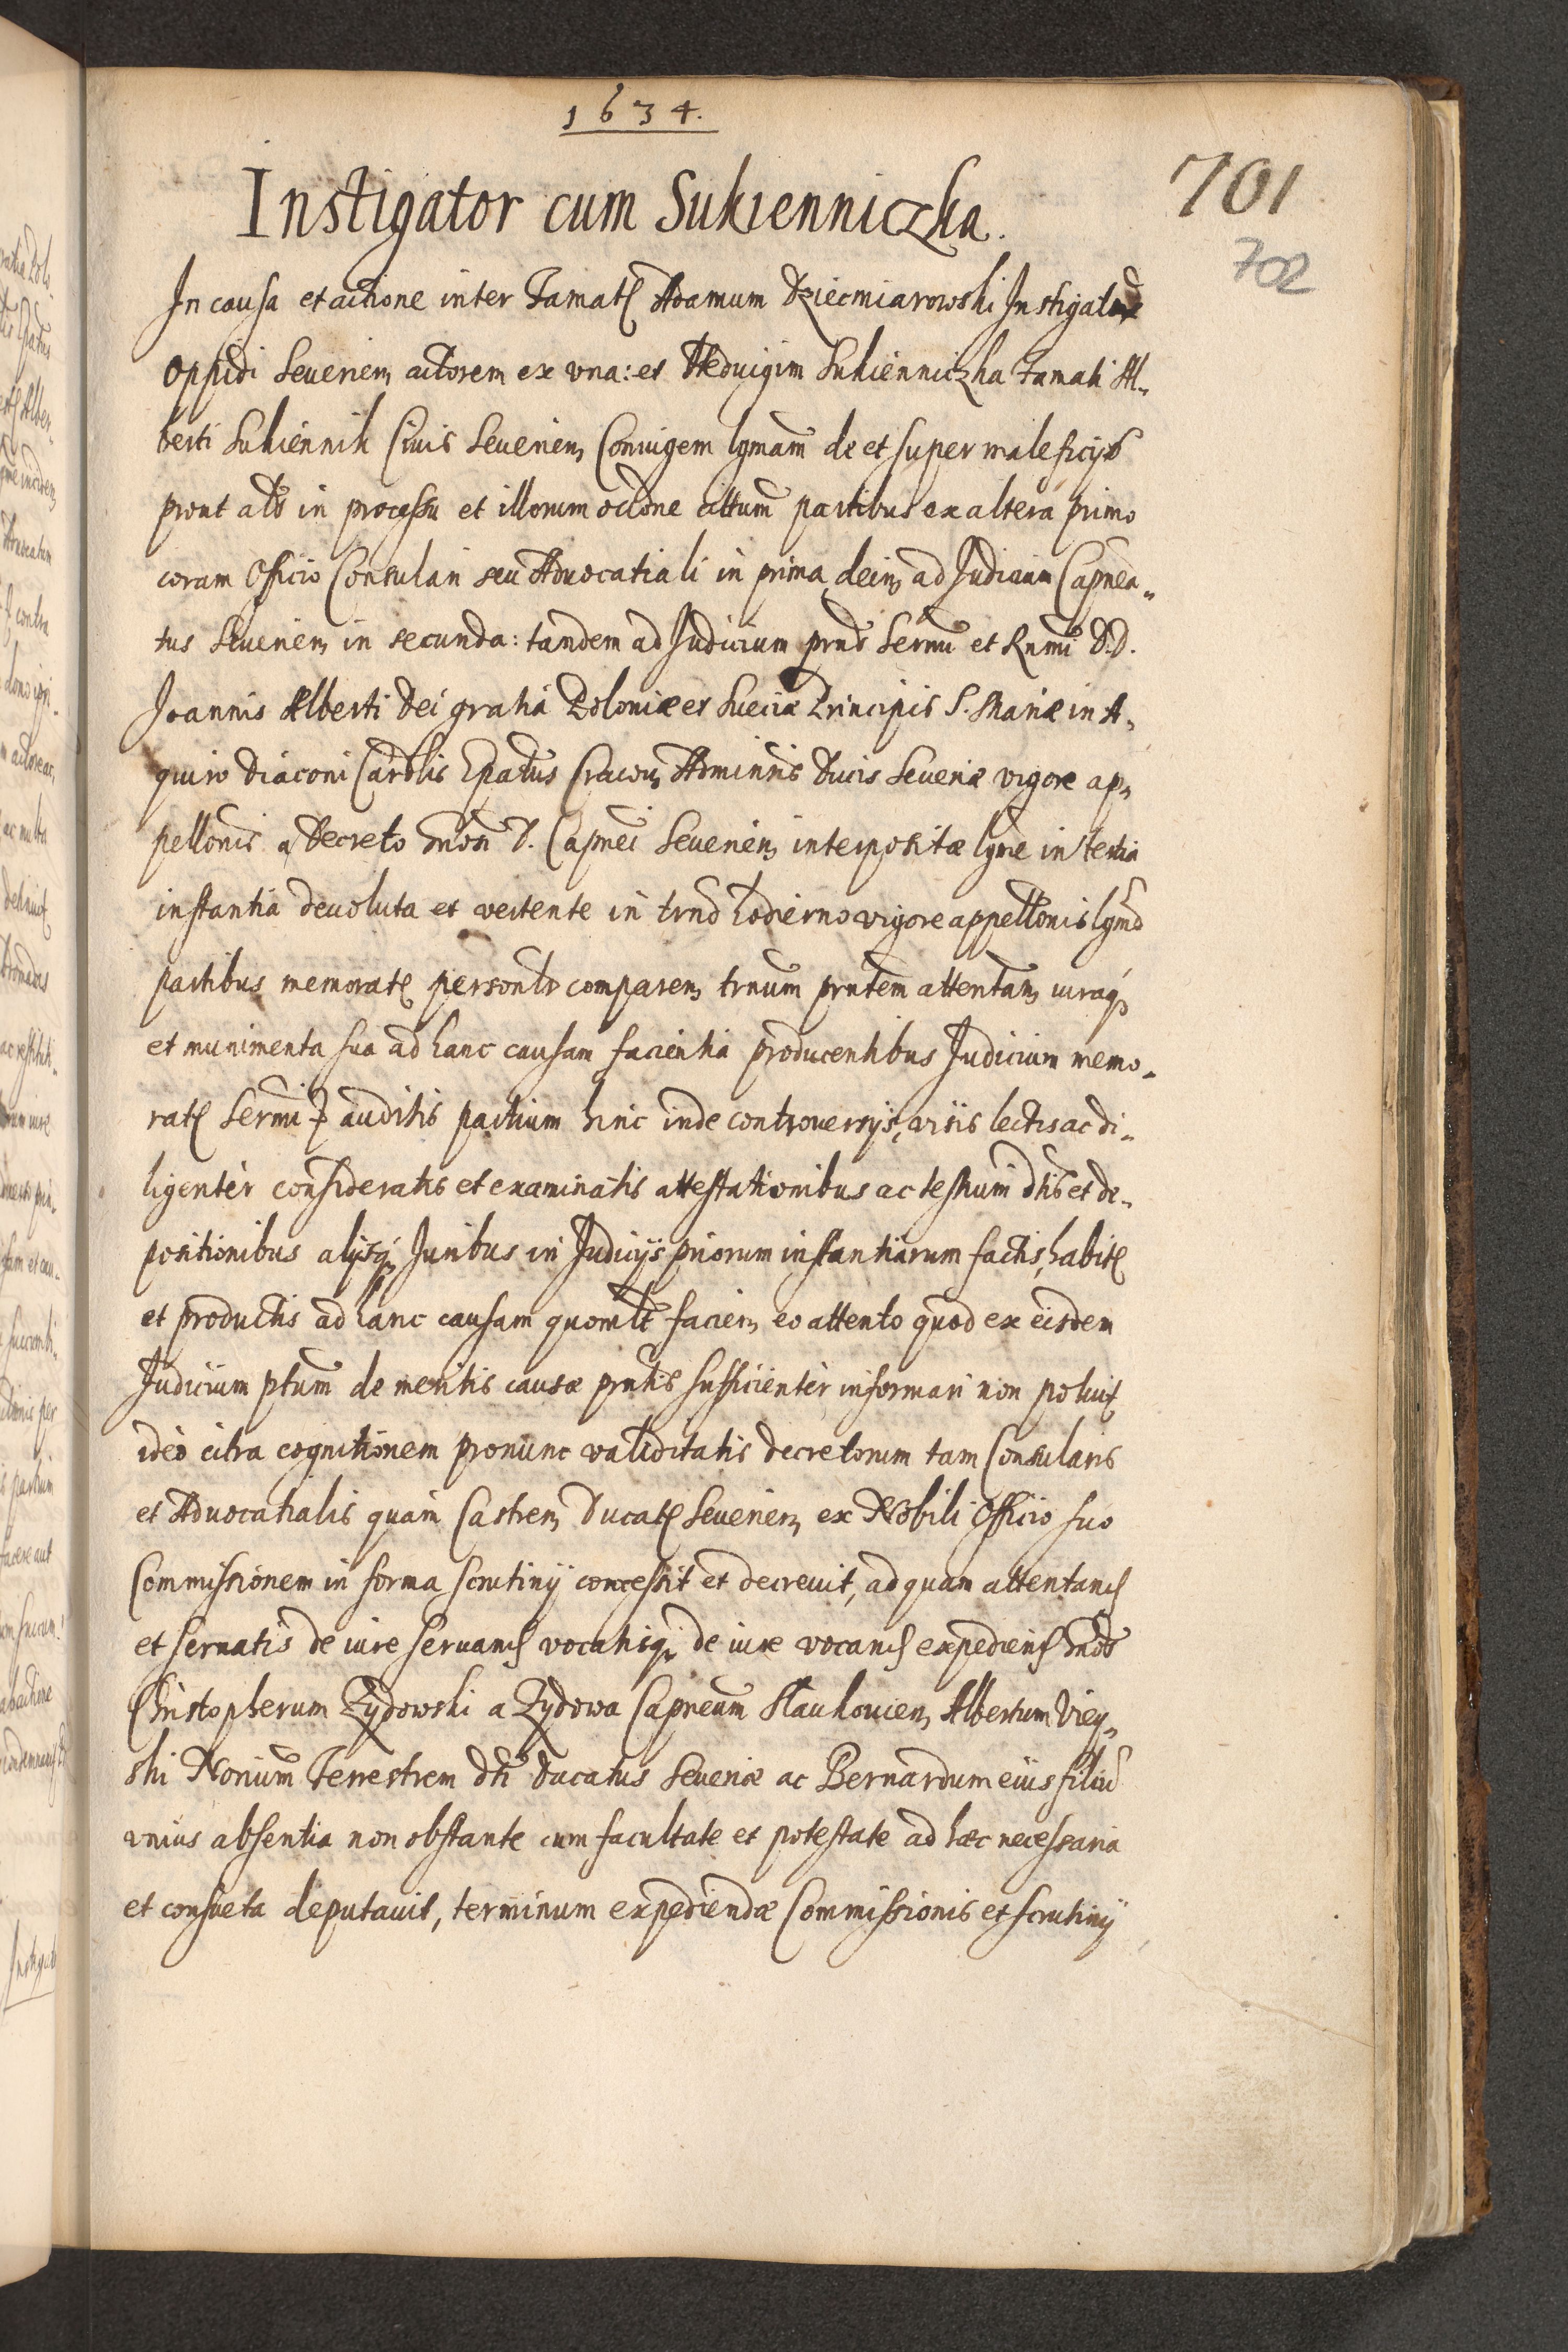 1634.
701
702
Instigator cum Sukienniczka.
In causa et actione inter Famat Adamum Dziecmiarowski Instigatore
Oppidi Seuerien actorem ex vna: et Heduigim Sukienniczka Famati Al-
berti Sukiennik Ciuis Seuerien Coniugem lgmam de et super maleficijs
prout als in processu et illorum occone actum partibus ex altera primo
coram Officio Consulari seu Aduocatiali in prima dein ad Judicium Capnea-
tus Seuerien in secunda: tandem ad Judicium prns Sermi et Rnmi D.D.
Joannis Alberti Dei gratia Poloniæ et Sueciæ Principis S. Mariæ in A-
quiro Diaconi Cardlis Epatus Cracou Adminris Ducis Seueriæ vigore ap-
pellonis a Decreto D. Capnei Seuerien interpositæ lgme in tertia
instantia deuoluta et vertente in trno hodierno vigore appellonis lgmo
partibus memorat personlr comparen trnum prntem attentan iuraq
et munimenta sua ad hanc causam facientia producentibus Judicium memo-
rat Sermi P auditis partium hinc inde controuersijs, visis lectis ac di-
ligenter consideratis et examinatis attestationibus ac testium dtis et de-
positionibus alijsq Juribus in Judicijs priorum instantiarum factis, habit
et productis ad hanc causam quomlt facien eo attento quod ex eisdem
Judicium ptum de meritis causæ prntis sufficienter informari non potuit
ideo citra cognitionem pronunc validitatis decretorum tam Consularis
et Aduocatialis quam Castren Ducat Seuerien ex Nobili Officio suo
Commissionem in forma scrutinij concessit et decreuit, ad quam attentand
et seruatis de iure seruand vocatisq de iure vocand expediend
Christopherum Zydowski a Zydowa Capneum Slaukouien Albertum
ski Norium Terrestrem dti Ducatus Seueriæ ac Bernardum eius filiu
vnius absentia non obstante cum facultate et potestate ad hæc necessaria
et consueta deputauit, terminum expediendæ Commissionis et scrutinij